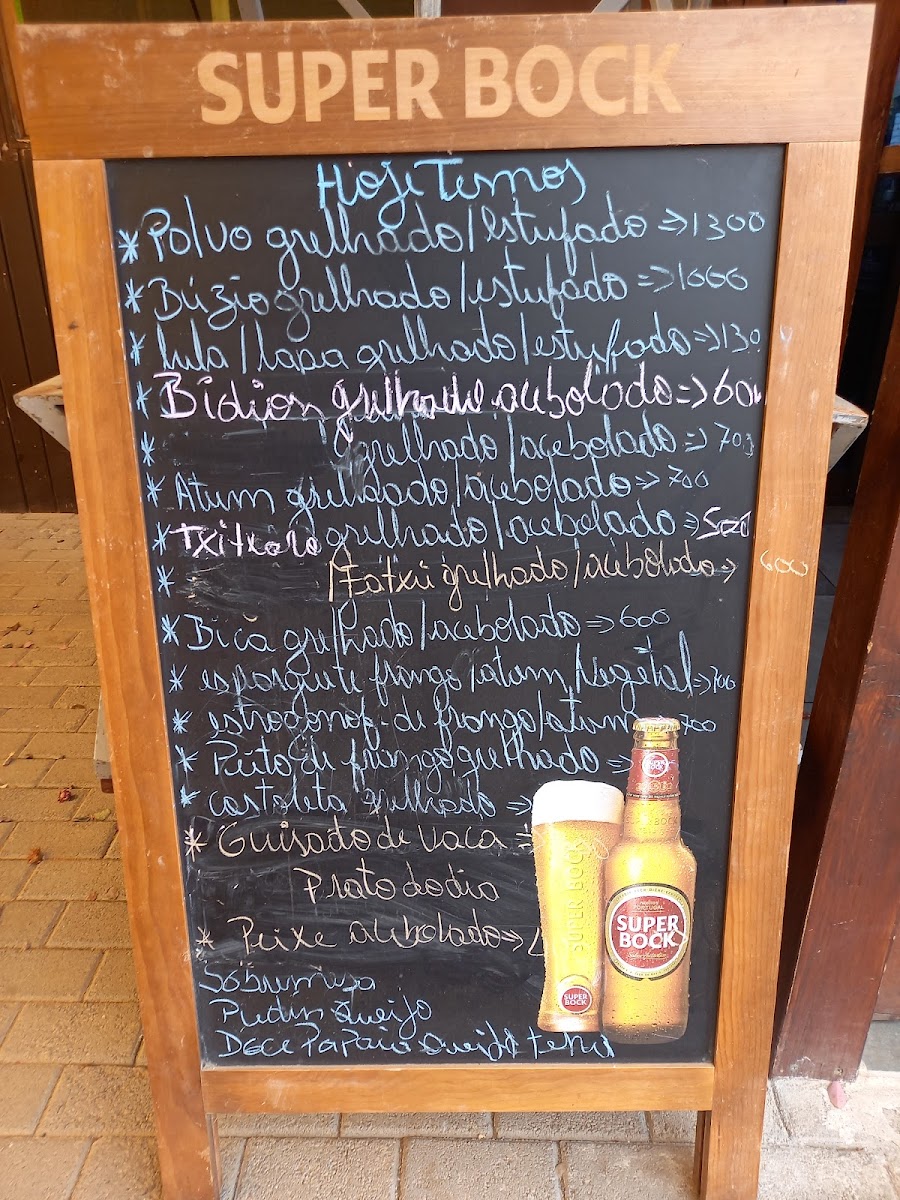 SUPER BOCK
Hoje Temos
* Polvo grelhado/estufado => 1300
* Búzio grelhado/estufado => 1000
* lula/lapa grelhado/estufado => 130
* Bidion grelhado acebolado => 600
* grelhado/acebolado => 700
* Atum grelhado/acebolado => 700
* Txitxaro grelhado/acebolado => 500
* Matxú grelhado/acebolado => 600
* Bica grelhado/acebolado => 600
* esparguete frango/atum/vegetal => 700
* estrogonof-de frango/atum 700
* Peito de frango grelhado =>
* costoleta grelhado =>
* Guisado de vaca =
Prato do dia
* Peixe acebolado =>
Sobrumesa
Pudim Queijo
Doce Papaia Queijo
SUPER BOCK
SUPER BOCK
SUPER BOCK
PORTUGAL
SUPER BOCK